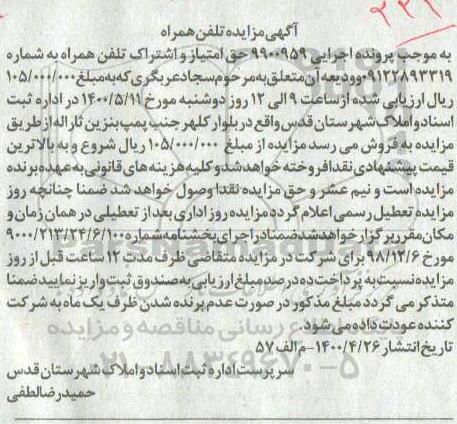 ۲۲۹
آگهی مزایده تلفن همراه
به موجب پرونده اجرایی ۹۹۰۰۹۵۹ حق امتیاز و اشتراک تلفن همراه به شماره
۰۹۱۲۲۸۹۳۳۱۹ وودیعه آن متعلق به مرحوم سجاد عربگری که به مبلغ ۱۰۵/۰۰۰/۰۰۰
ریال ارزیابی شده از ساعت ۹ الی ۱۲ روز دوشنبه مورخ ۱۴۰۰/۵/۱۱ در اداره ثبت
اسناد و املاک شهرستان قدس واقع در بلوار کلهر جنب پمپ بنزین ثاراله از طریق
مزایده به فروش می رسد مزایده از مبلغ ۱۰۵/۰۰۰/۰۰۰ ریال شروع و به بالاترین
قیمت پیشنهادی نقدا فروخته خواهد شد و کلیه هزینه های قانونی به عهده برنده
مزایده است و نیم عشر و حق مزایده نقدا وصول خواهد شد ضمنا چنانچه روز
مزایده تعطیل رسمی اعلام گردد مزایده روز اداری بعد از تعطیلی در همان زمان و
مکان مقرر برگزار خواهد شد ضمنا در اجرای بخشنامه شماره ۹۰۰۰/۲۱۳/۲۴/۶/۱۰۰
مورخ ۹۸/۱۲/۶ برای شرکت در مزایده متقاضی ظرف مدت ۱۲ ساعت قبل از روز
مزایده نسبت به پرداخت ده درصد مبلغ ارزیابی به صندوق ثبت واریز نمایید ضمنا
متذکر می گردد مبلغ مذکور در صورت عدم برنده شدن ظرف یک ماه به شرکت
کننده عودت داده می شود.
تاریخ انتشار ۱۴۰۰/۴/۲۶ - م الف ۵۷
سرپرست اداره ثبت اسناد و املاک شهرستان قدس
حمیدرضا لطفی